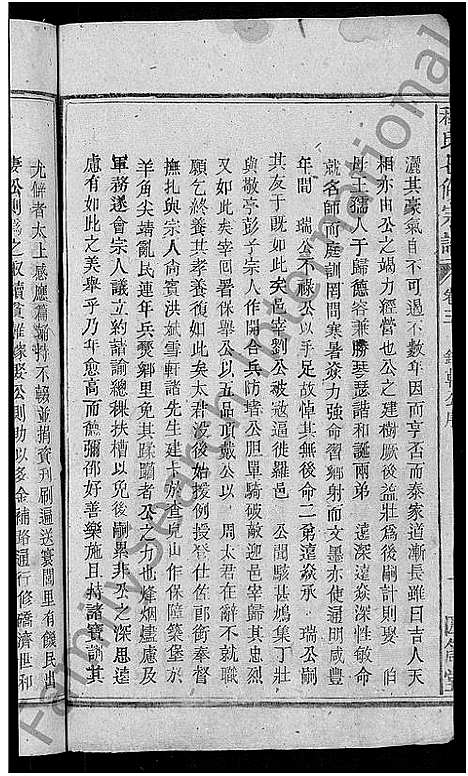 程氏七修宗譜 卷三
灑其豪氣自不過數年因而亨否而泰家道漸長雖日吉人天
相亦由公之竭力經營也公之建樹厥後益壯爲後嗣計則娶 伯
母王孺人于歸德容兼勝琴瑟諧和誕兩弟 遠深遠焱深性敏命
就名師而庭訓罔間寒暑焱力強命習鄉射而文墨亦使通明咸豐
年間 瑞公不祿公以手足故悼其無後命二弟遠焱承 瑞公嗣
其友于旣如此矣邑宰劉公被逃徙羅邑 公聞駭甚鳩集丁壯
與敬亭彭子宗人作關各兵防堵公胆單騎破敵迎邑宰歸其忠
又如此屢宰回署保舉公以五品頂戴公以 周太君在辭不就
願乞終養其孝養復如此矣太君後始援例授運職 年髮匪
撫扎與宗人俞賓洪斌雪軒諸先生建卡於查兒山作保障築堡於
羊角尖靖亂民連年兵燹鄉里免其蹂躪者公之力也烽烟建處及
軍務遂會宗人議立約諧諭總棟扶槽以免後嗣累非公之深思遠
慮有如此之美舉乎乃年愈高而髦彌邵好善樂施且持諸寶訓其
尤僻者太上感應篇誦持不輟並捐資刋刷遍送寰闤里有餓民出
妻公則爲之取贖貧難嫁娶公則助以多金補路通行修橋濟世和
Familysearch International